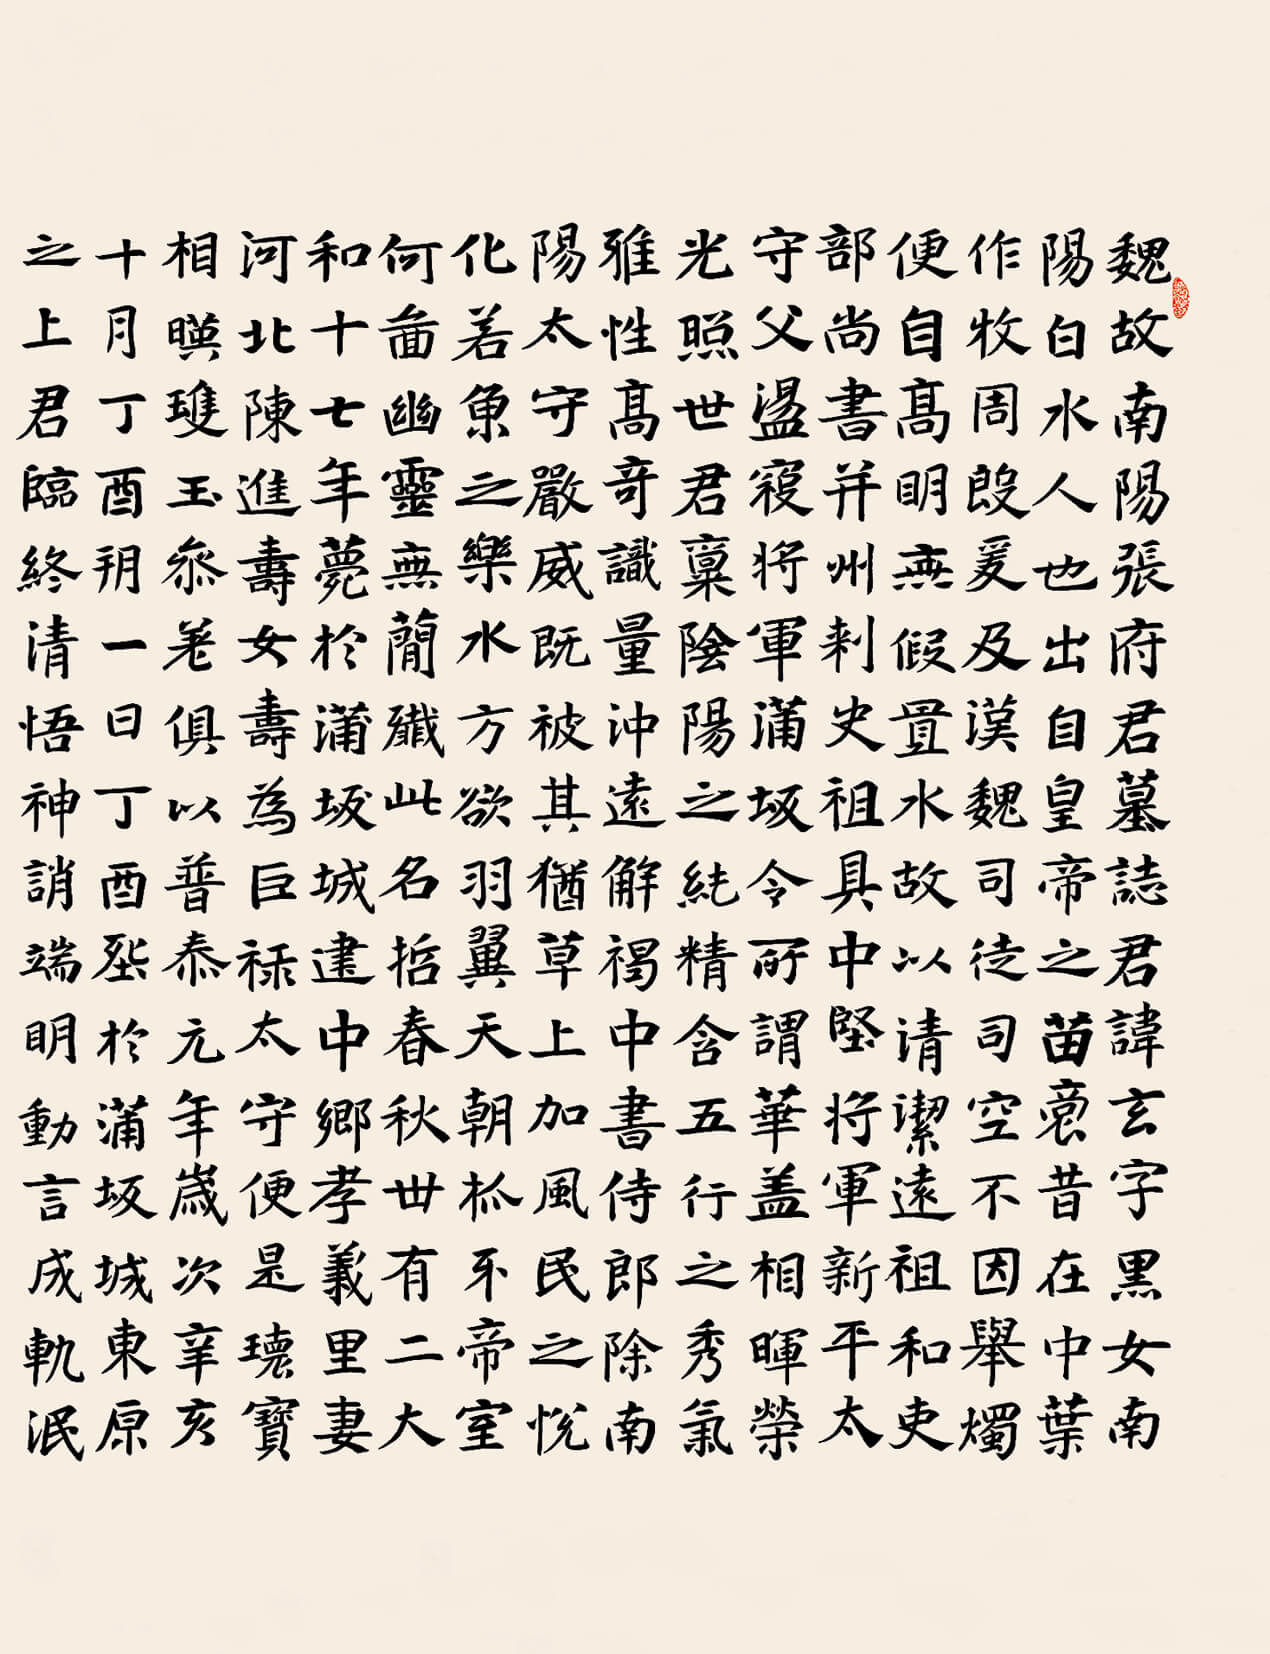 魏故南陽張府君墓誌君諱玄字黑女南
陽白水人也出自皇帝之苗裔昔在中葉
作牧周殷爰及漢魏司徒司空不因舉燭
便自高明無假置水故以清潔遠祖和吏
部尚書并州刾史祖具中堅将軍新平太
守父盪寇将軍蒲坂令所謂華盖相暉榮
光照世君稟陰陽之純精含五行之秀氣
雅性高奇識量沖遠解褐中書侍郎除南
陽太守嚴威既被其猶草上加風民之悅
化若魚之樂水方欲羽翼天朝抓牙帝室
何啚幽靈無簡殲此名哲春秋卅有二大
和十七年薨於蒲坂城建中鄉孝義里妻
河北陳進壽女壽為巨祿太守便是瓌寶
相暎瓊玉叅差俱以普泰元年歲次辛亥
十月丁酉朔一日丁酉㘸於蒲坂城東原
之上君臨終清悟神誚端明動言成軌泯